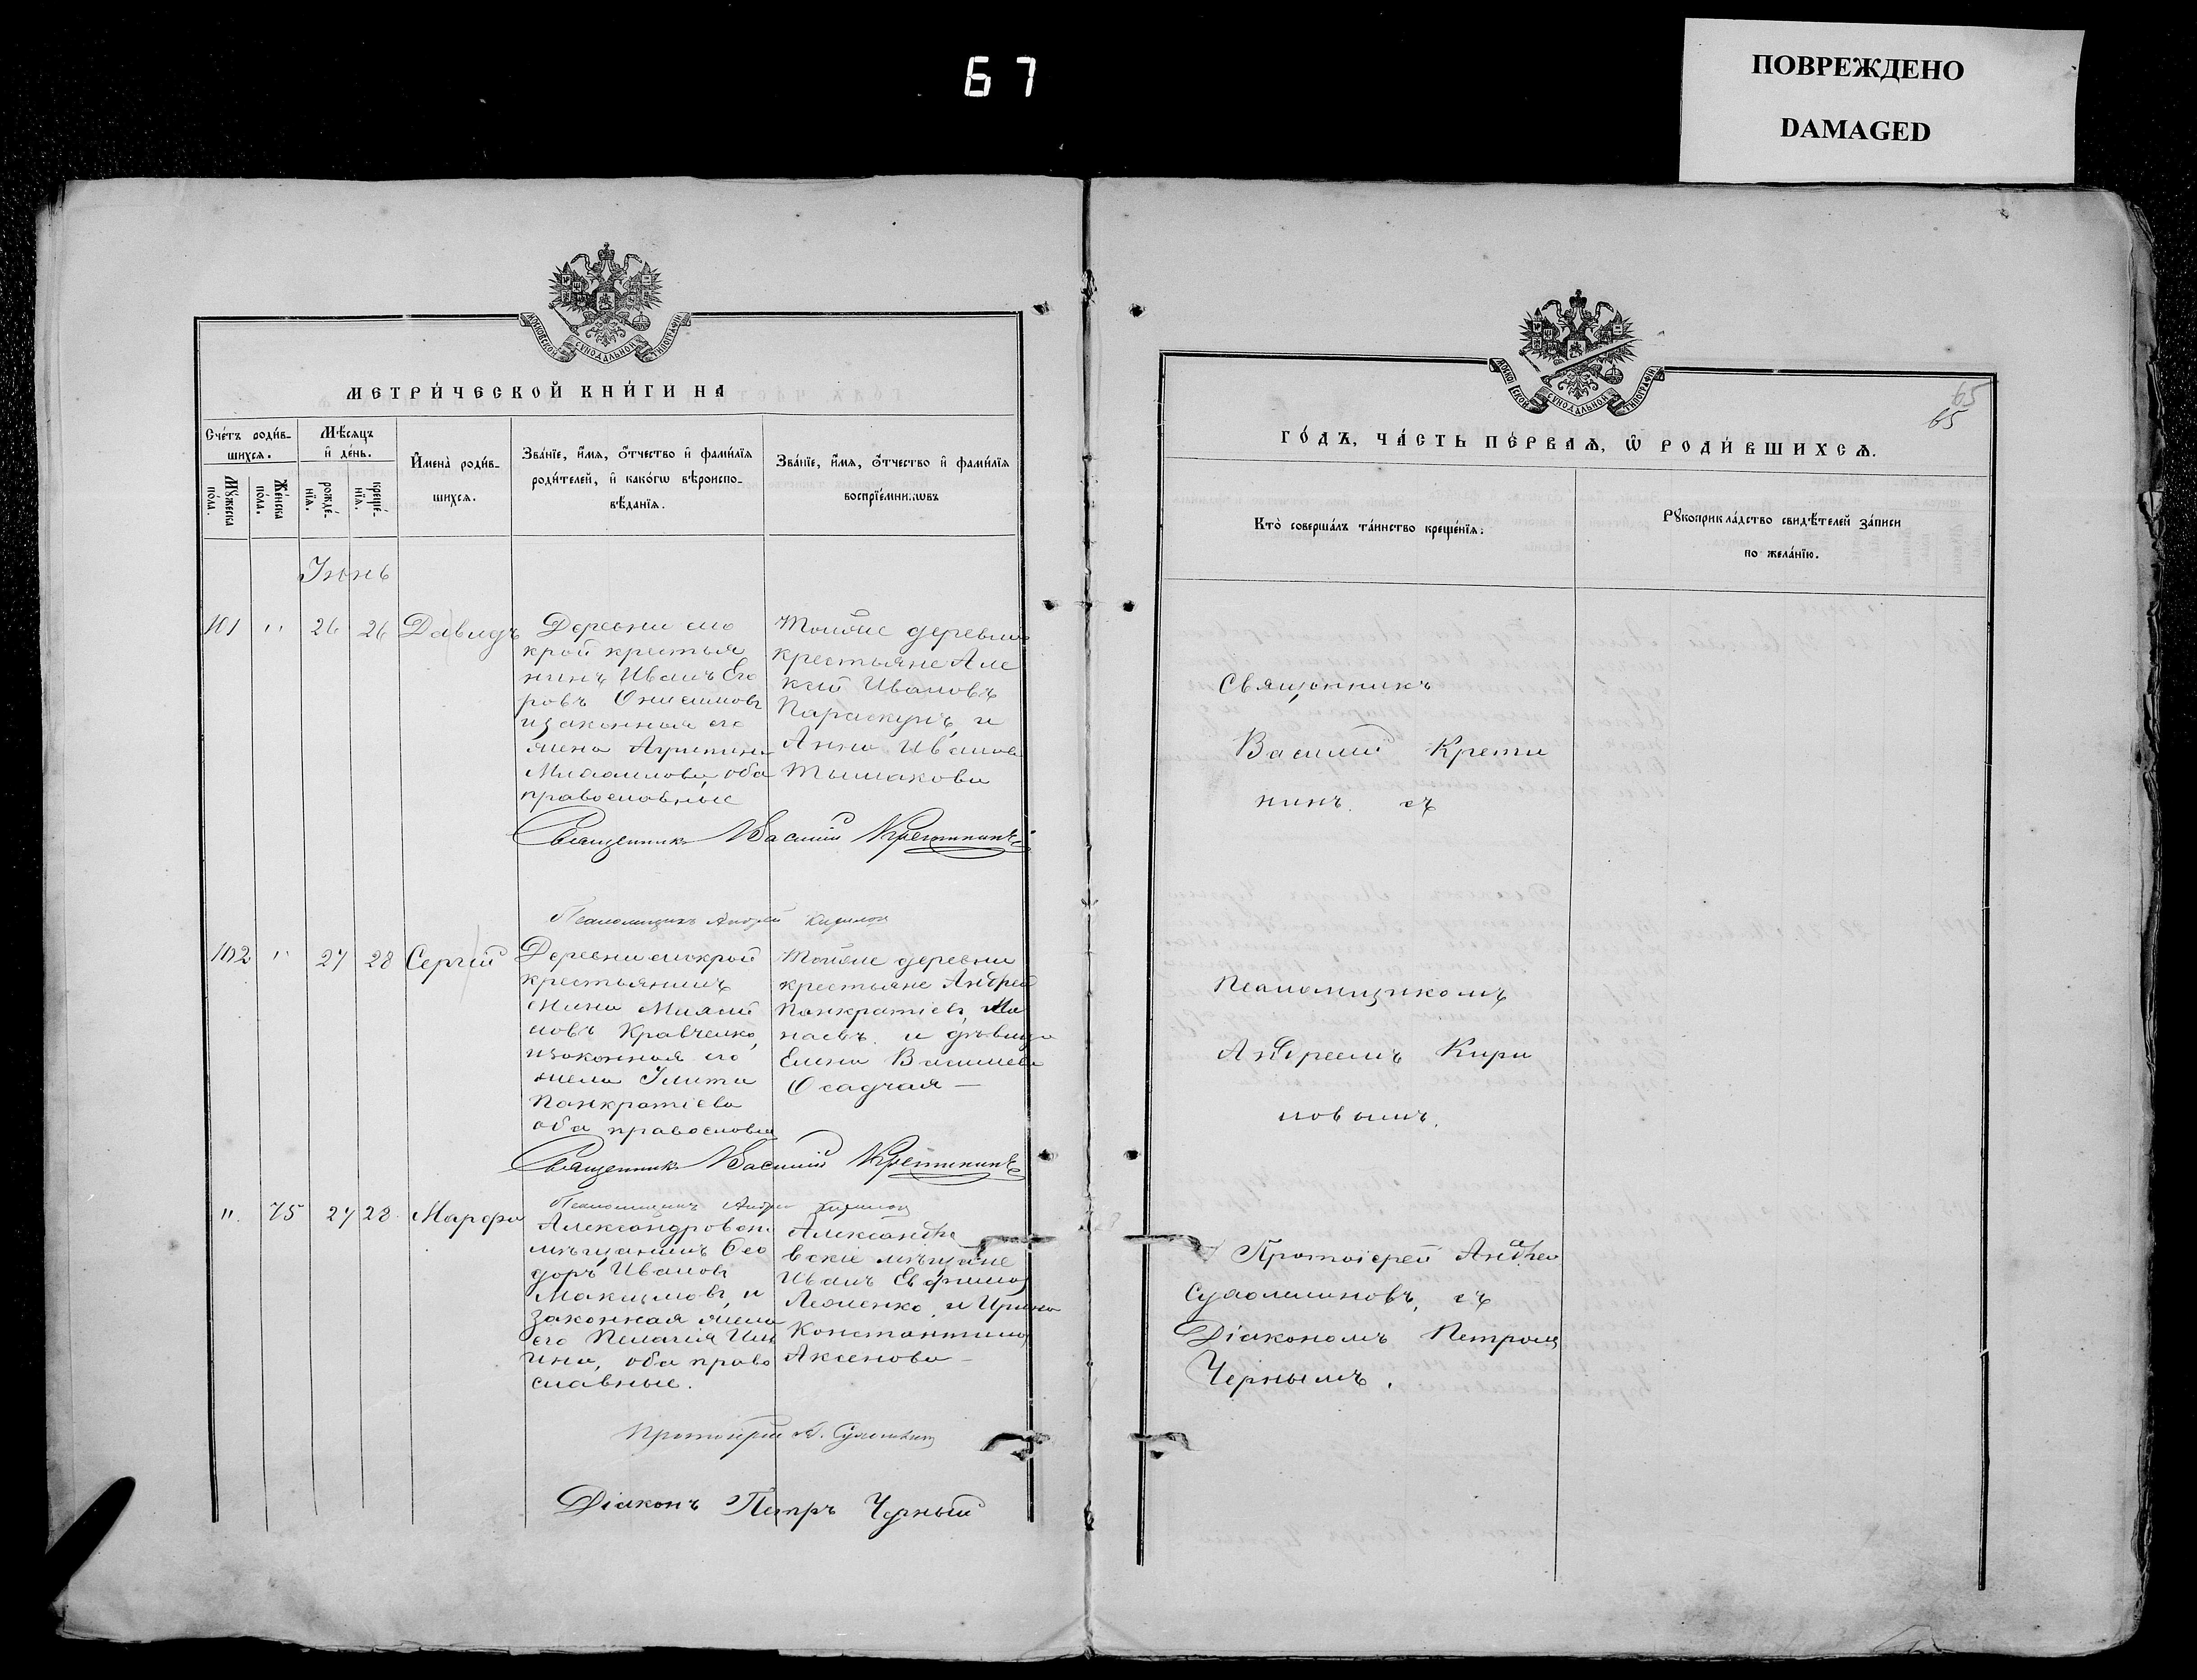 67
ПОВРЕЖДЕНО
DAMAGED
МОСКОВСКОЙ СѴНОДАЛЬНОЙ ТИПОГРАФІИ
МЕТРИ́ЧЕСКОЙ КНИ́ГИ НА
Сче́тъ роди́в-
шихсѧ.
Мꙋ́жеска по́ла.
Же́нска по́ла.
Мѣ́сѧцъ
и҆ де́нь.
рожде́-
нїѧ.
креще́-
нїѧ.
И҆мена̀ роди́в-
шихсѧ.
Зва́нїе, и҆́мѧ, ѻ҆́тчество и҆ фами́лїѧ
роди́телей, и҆ како́гѡ вѣроиспо-
вѣ́данїѧ.
Зва́нїе, и҆́мѧ, ѻ҆́тчество и҆ фами́лїѧ
воспрїе́мникѡвъ
Іюнь
101 " 26 26 Давидъ
Деревни Мо
крой крестья
нинъ Иванъ Его
ровъ Онисимовъ
и законная его
жена
Михаилова, оба
православные
Тойже деревни
крестьяне Але
ксѣй Ивановъ
и
Анна Иванова
Священникъ Василій Кретининъ
Псаломщикъ Андрей Кириловъ
102 " 27 28 Сергій
Деревни Мокрой
крестьянинъ
Мина
Кравченко,
и законная его
жена
Панкратіева
оба православны
Тойже деревни
крестьяне Андрей
Панкратіевъ Ми
наевъ и дѣвица
Елена Василіева
Осадчая —
Священникъ Василій Кретининъ
Псаломщикъ Андрей Кириловъ
" 75 27 28 Марфа
Александровскій
мѣщанинъ Ѳео
доръ Ивановъ
Максимовъ, и
законная жена
его Пелагія Иль
ина, оба право
славные.
Александро
вскіе мѣщане
Иванъ Евфимов
и Ирина
Константинов
Аксенова —
Протоіерей А. Сухомлинов
Діаконъ Петръ Черный
65
65
МОСКОВСКОЙ СѴНОДАЛЬНОЙ ТИПОГРАФІИ
ГО́ДЪ, ЧА́СТЬ ПЕ́РВАѦ, Ѡ҆ РОДИ́ВШИХСѦ.
Кто̀ соверша́лъ та́инство креще́нїѧ.
Рꙋкоприкла́дство свидѣ́телей за́писи
по жела́нїю.
Священникъ
Василій Крети
нинъ съ
Псаломщикомъ
Андреемъ Кири
ловымъ.
Протоіерей Андрей
Сухомлиновъ, съ
Діакономъ Петромъ
Чернымъ.